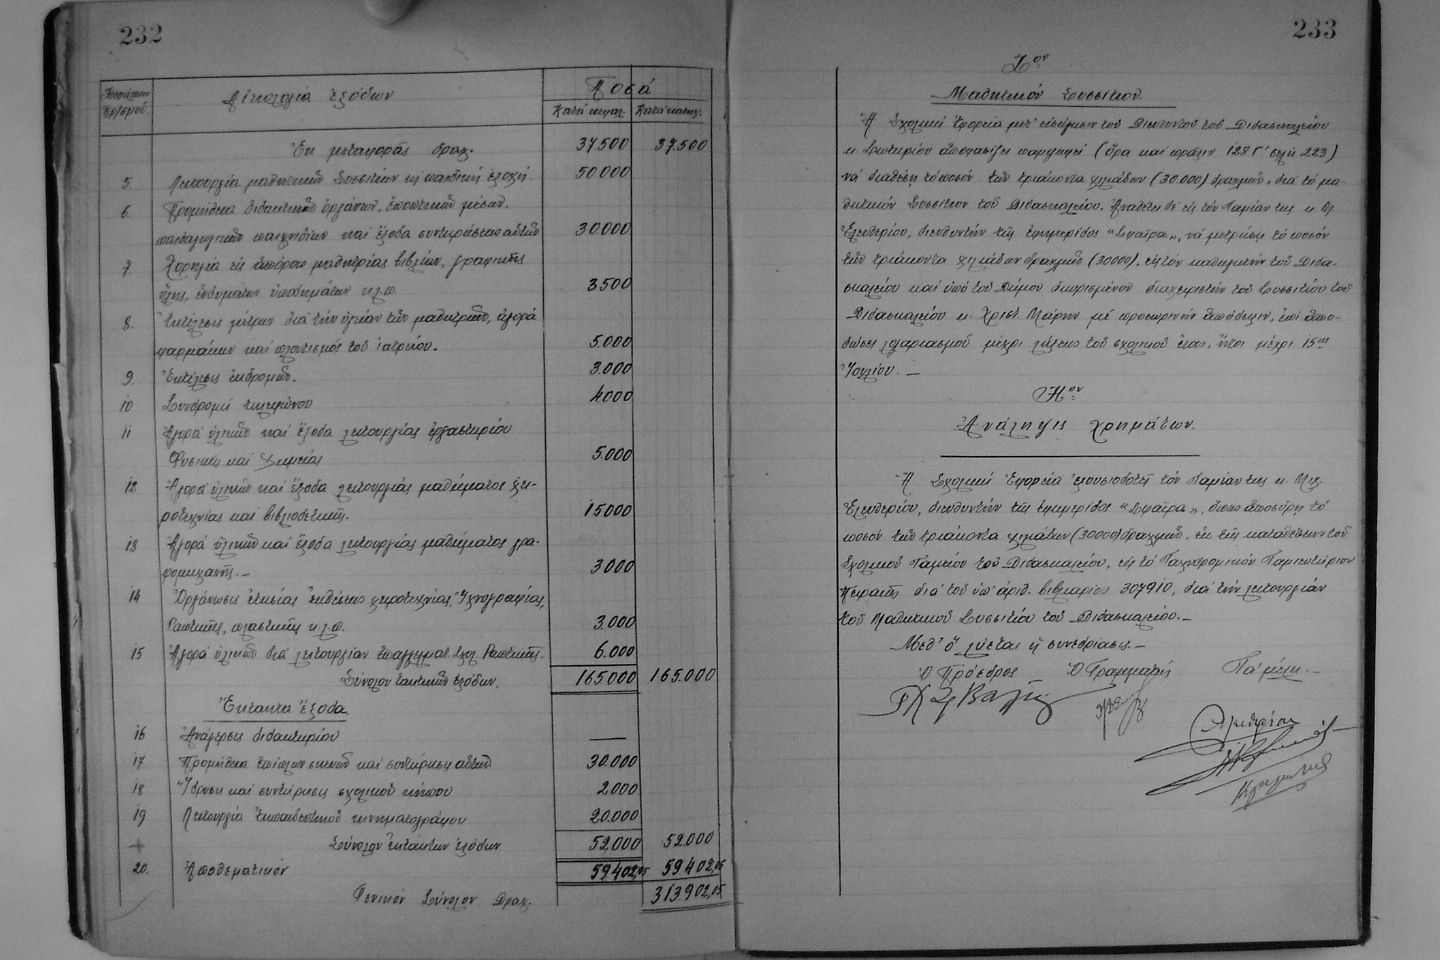 232
Κεφάλαιον Προϋπ/σμοῦ.
Αἰτιολογία ἐξόδων
Ποσά
Κατά κεφάλ.
Κατά κατηγ.
Ἐκ μεταφορᾶς δραχ. 37.500 37.500
5. Λειτουργία μαθητικῶν Συσσιτίων τῆς παιδικῆς ἐξοχῆς 50.000
6. Προμήθεια διδακτικῶν ὀργάνων, ἐποπτικῶν μέσων.
παιδαγωγικῶν παιγνιδίων καί ἔξοδα συντηρήσεως αὐτῶν 30.000
7. Χορηγία εἰς ἀπόρους μαθητρίας βιβλίων, γραφικῆς
ὕλης, ἐνδυμάτων ὑποδημάτων κ.λ.π. 3500
8. Ἐκτέλεσις μέτρων διά τήν ὑγείαν τῶν μαθητριῶν, ἀγορά
φαρμάκων καί πλουτισμός τοῦ ἰατρείου. 5.000
9 Ἐκτέλεσις ἐκδρομῶν. 3.000
10 Συνδρομή τηλεφώνου 4000
11 Ἀγορά ὑλικῶν καί ἔξοδα λειτουργίας ἐργαστηρίου
Φυσικῆς καί Χημείας 5.000
12 Ἀγορά ὑλικῶν καί ἔξοδα λειτουργίας μαθήματος χει-
ροτεχνίας καί βιβλιοδετικῆς. 15000
13 Ἀγορά ὑλικῶν καί ἔξοδα λειτουργίας μαθήματος γρα-
φομηχανῆς.- 3000
14 Ὀργάνωσις ἐτησίας ἐκθέσεως χειροτεχνίας, Ἰχνογραφίας,
Ραπτικῆς, πλαστικῆς κ.λ.π. 3.000
15 Ἀγορά ὑλικῶν διά λειτουργίαν ἐπαγγελματ. Σχολ. Ραπτικῆς. 6.000
Σύνολον τακτικῶν ἐξόδων. 165000 165.000
Ἔκτακτα ἔξοδα
16 Ἀνέγερσις διδακτηρίου —
17 Προμήθεια ἐπίπλων σκευῶν καί συντήρησις αὐτῶν 30.000
18 Ἵδρυσις καί συντήρησις σχολικοῦ κήπου 2.000
19 Λειτουργία Ἐκπαιδευτικοῦ κινηματογράφου 20.000
+ Σύνολον Ἐκτάκτων ἐξόδων 52.000 52.000
20. Ἀποθεματικόν 59402,05 59402,05
Γενικόν Σύνολον Δραχ. 313.902,05
233
Ζον
Μαθητικόν Συσσίτιον.
Ἡ Σχολική Ἐφορεία μετ' εἰσήγησιν τοῦ Διευθυντοῦ τοῦ Διδασκαλείου
κ. Σωτηρίου ἀποφασίζει παμψηφεί (ὅρα καί πρᾶξιν 128 Γ' σελίς 223)
νά διαθέσῃ τό ποσόν τῶν τριάκοντα χιλιάδων (30.000) δραχμῶν, διά τό μα-
θητικόν Συσσίτιον τοῦ Διδασκαλείου. Ἀναθέτει δέ εἰς τόν Ταμίαν της κ. Μ.
Ἐλευθερίου, διευθυντήν τῆς ἐφημερίδος «Σφαῖρα», νά μετρήσῃ τό ποσόν
τῶν τριάκοντα χιλιάδων δραχμῶν (30000), εἰς τόν καθηγητήν τοῦ Διδα-
σκαλείου καί ὑπό τοῦ Δήμου διωρισμένον διαχειριστήν τοῦ Συσσιτίου τοῦ
Διδασκαλείου κ. Χριστ. μέ προσωρινήν ἀπόδειξιν, ἐπί ἀπο-
δώσει λογαριασμοῦ μέχρι λήξεως τοῦ σχολικοῦ ἔτους, ἤτοι μέχρι 15ης
Ἰουλίου. —
Ηον
Ἀνάληψις χρημάτων.
Ἡ Σχολική Ἐφορεία ἐξουσιοδοτεῖ τόν Ταμίαν της κ. Μιχ.
Ἐλευθερίου, διευθυντήν τῆς ἐφημερίδος «Σφαῖρα», ὅπως ἀποσύρῃ τό
ποσόν τῶν τριάκοντα χιλιάδων (30000) δραχμῶν. ἐκ τῆς καταθέσεως τοῦ
Σχολικοῦ Ταμείου τοῦ Διδασκαλείου, εἰς τό Ταχυδρομικόν Ταμιευτήριον
Πειραιῶς διά τοῦ ὑπ' ἀριθ. βιβλιαρίου 307910, διά τήν λειτουργίαν
τοῦ Μαθητικοῦ Συσσιτίου τοῦ Διδασκαλείου.—
Μεθ' ὅ λύεται ἡ συνεδρίασις.—
Ὁ Πρόεδρος Ὁ Γραμματεύς Τά μέλη.—
Ἐλευθερίου